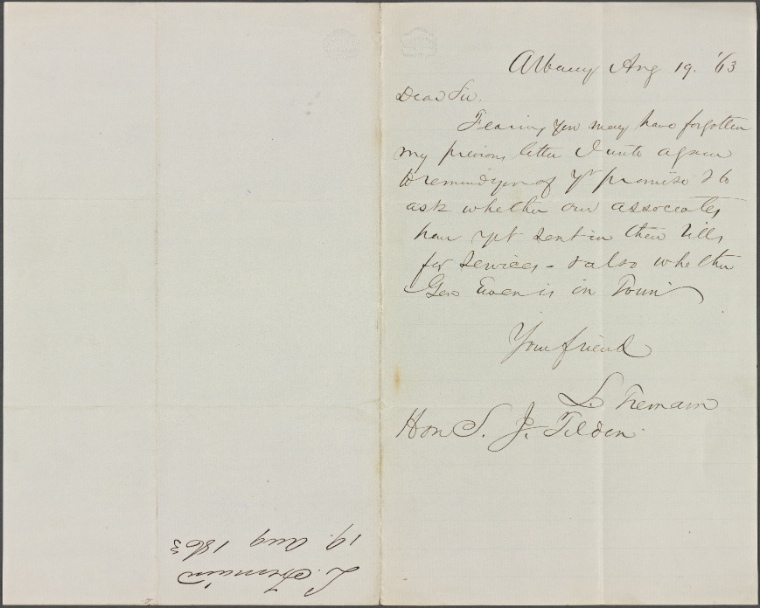 Albany Aug 19. '63
Dear Sir.
Fearing you may have forgotten
my previous letter I write again
to remind you of yr promise & to
ask whether our associates
have yet sent in their bills
for services - & also whether
Geo is in Town
Your friend
L. Tremain
Hon S. J. Tilden.
L. Tremain
19. Aug 1863